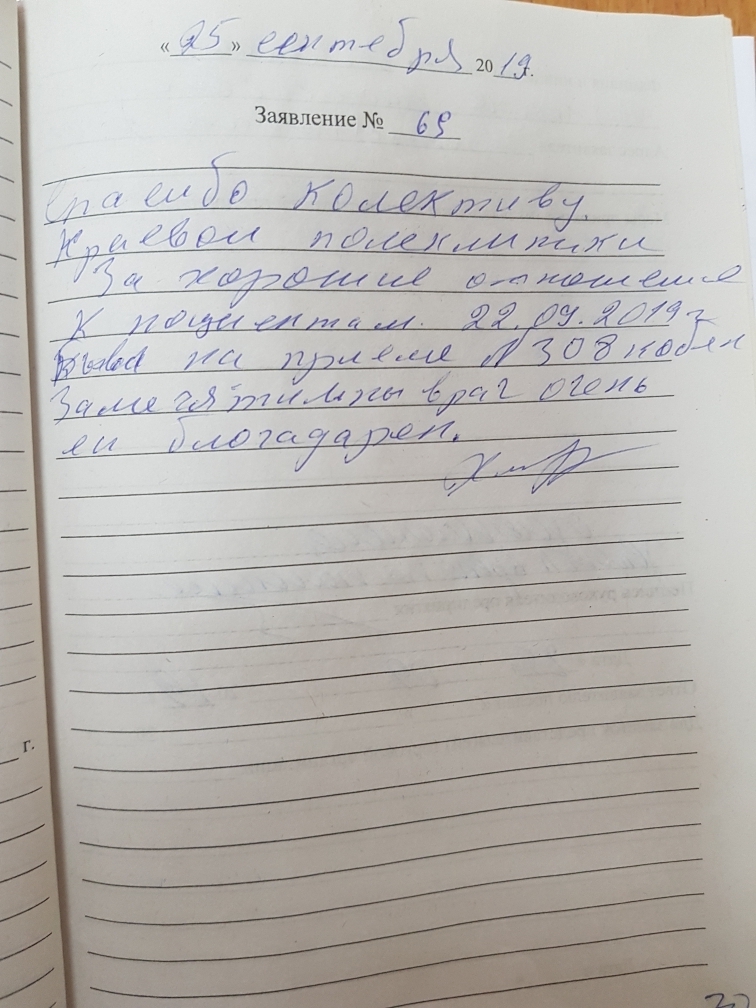 «25» сентября 2019г.
Заявление № 69
Спасибо колективу.
Краевои полеклиники
За хорошие отношение
к пациентам. 22.09.2019г
бывал на приеме N308 кобен
Замечятилны врач очень
еи благадарен.
г.